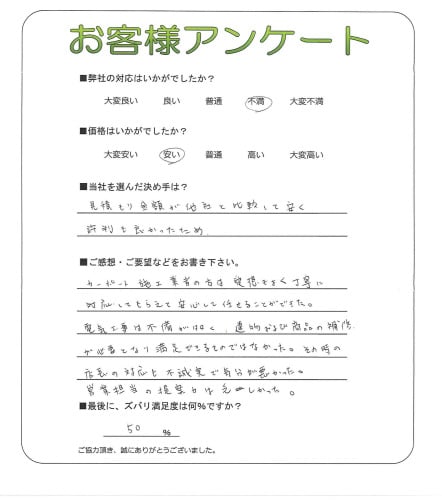 お客様アンケート
■弊社の対応はいかがでしたか?
大変良い 良い 普通 不満 大変不満
■価格はいかがでしたか?
大変安い 安い 普通 高い 大変高い
■当社を選んだ決め手は?
見積もり金額が他社と比較して安く
評判も良かったため
■ご感想・ご要望などをお書き下さい。
カーポート施工業者の方は愛想もよく丁寧に
対応してもらえて安心して任せることができた。
電気工事は不備がひどく、建物および商品の補修
が必要となり満足できるものではなかった。その時の
店長の対応も不誠実で気分が悪かった。
営業担当の提案力は
しかった。
■最後に、ズバリ満足度は何%ですか?
50 %
ご協力頂き、誠にありがとうございました。